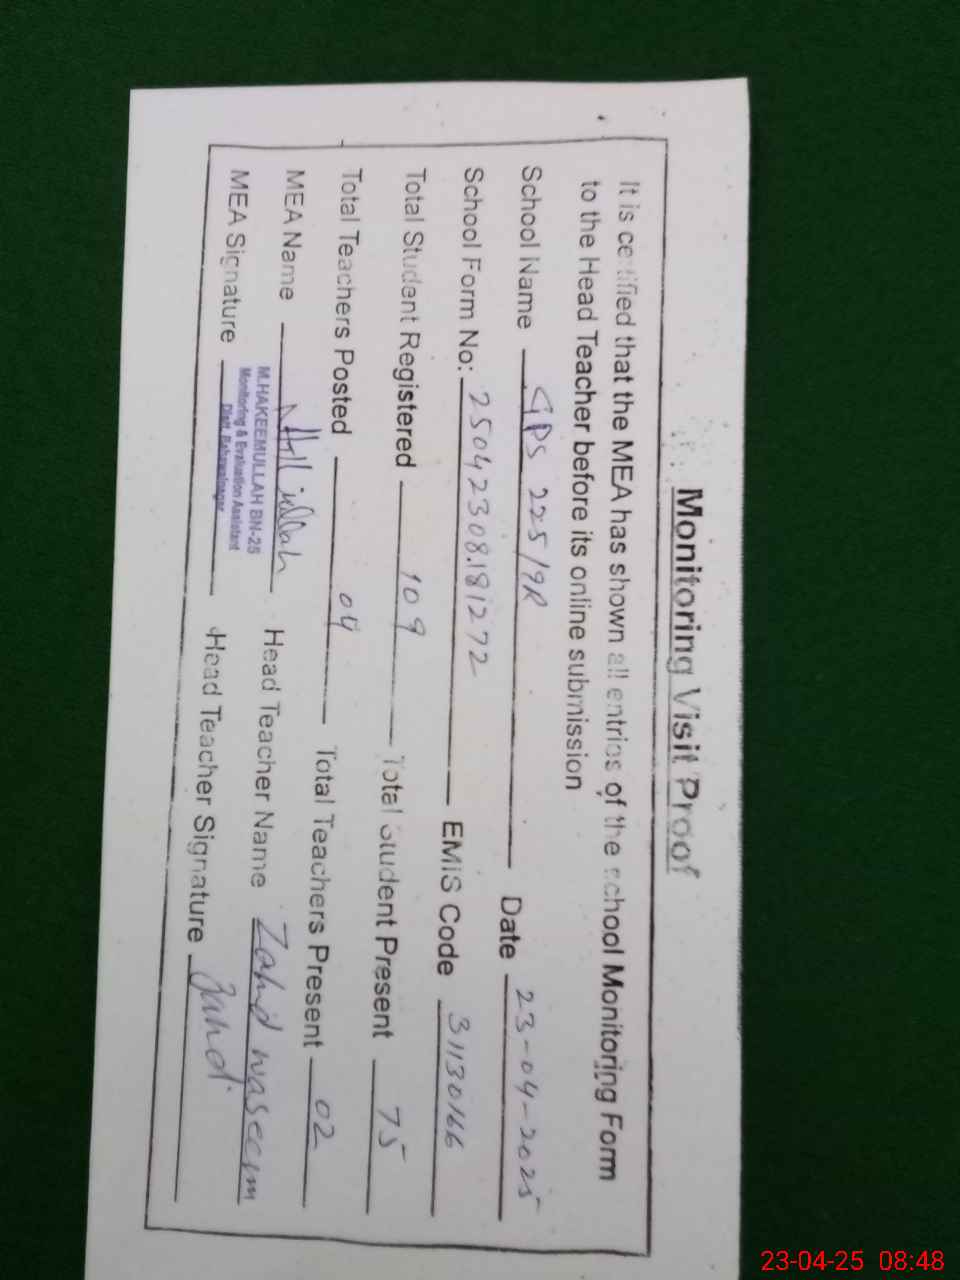 Monitoring Visit Proof
It is certified that the MEA has shown all entries of the school Monitoring Form
to the Head Teacher before its online submission
School Name GPS 225/9R Date 23-04-2025
School Form No: 250423081812 72 EMIS Code 31130166
Total Student Registered 109 Total Student Present 75
Total Teachers Posted 04 Total Teachers Present 02
MEA Name Head Teacher Name Zahid waseem
M.HAKEEMULLAH BN-25
Monitoring & Evaluation Assistant
Distt. Bahawalnagar
MEA Signature Head Teacher Signature Zahid
23-04-25 08:48